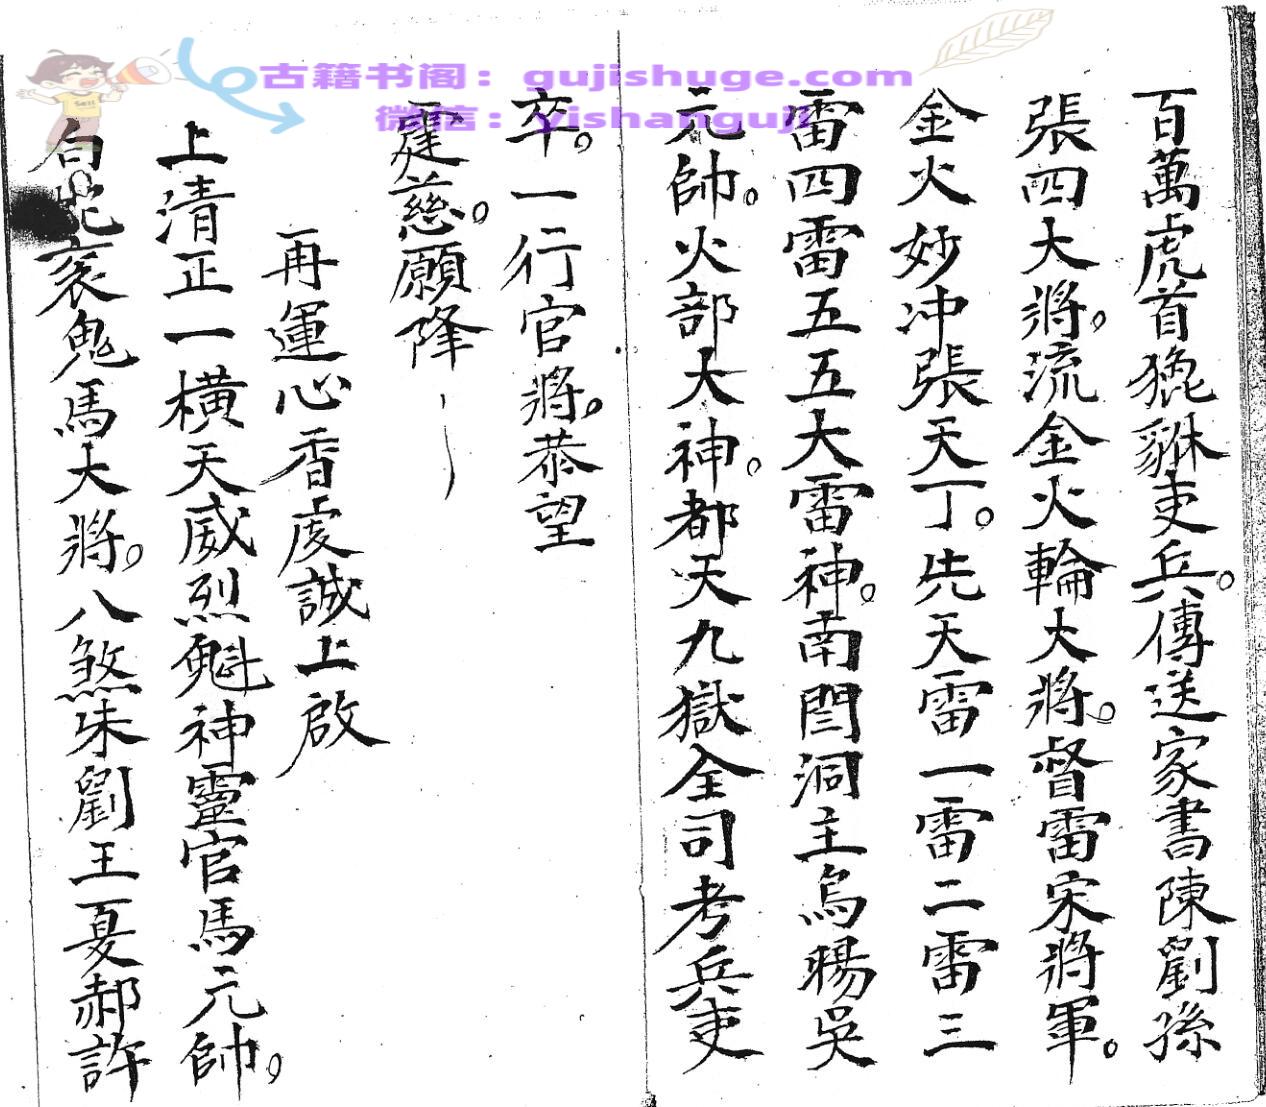 古籍书阁：gujishuge.com
微信：yishanguji
百萬虎首猊貅吏兵。傳送家書陳劉孫
張四大將。流金火輪大將。督雷宋將軍。
金火妙冲張天丁。先天雷一雷二雷三
雷四雷五五大雷神。南閆洞主烏楊吴
元帥。火部大神。都天九獄全司考兵吏
卒。一行官將。恭望
霆慈。願降
再運心香虔誠上啟
上清正一橫天威烈魁神靈官馬元帥。
白蛇衮鬼馬大將。八煞朱劉王夏郝許